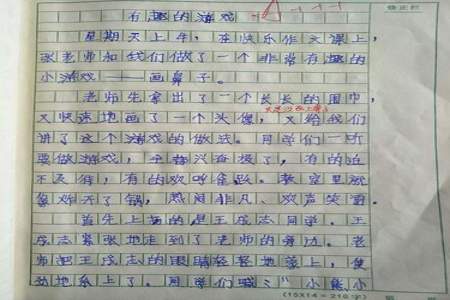 有趣的游戏
星期天上午，在快乐作文课上，
张老师和我们做了一个非常有趣的
小游戏——画鼻子。
老师先拿出了一个长长的围巾，
又快速地画了一个头像，又给我们
讲了这个游戏的做法。同学们一听
要做游戏，全都兴奋极了，有的迫
不及待，有的欢呼雀跃。教室里就
像炸开了锅，热闹非凡、欢声笑语。
首先上场的是王成志同学。王
成志紧张地走到了老师的旁边。老
师把王成志的眼睛轻轻地蒙上，使
劲地系上了。同学们喊："小熊小
(15×14=210字)